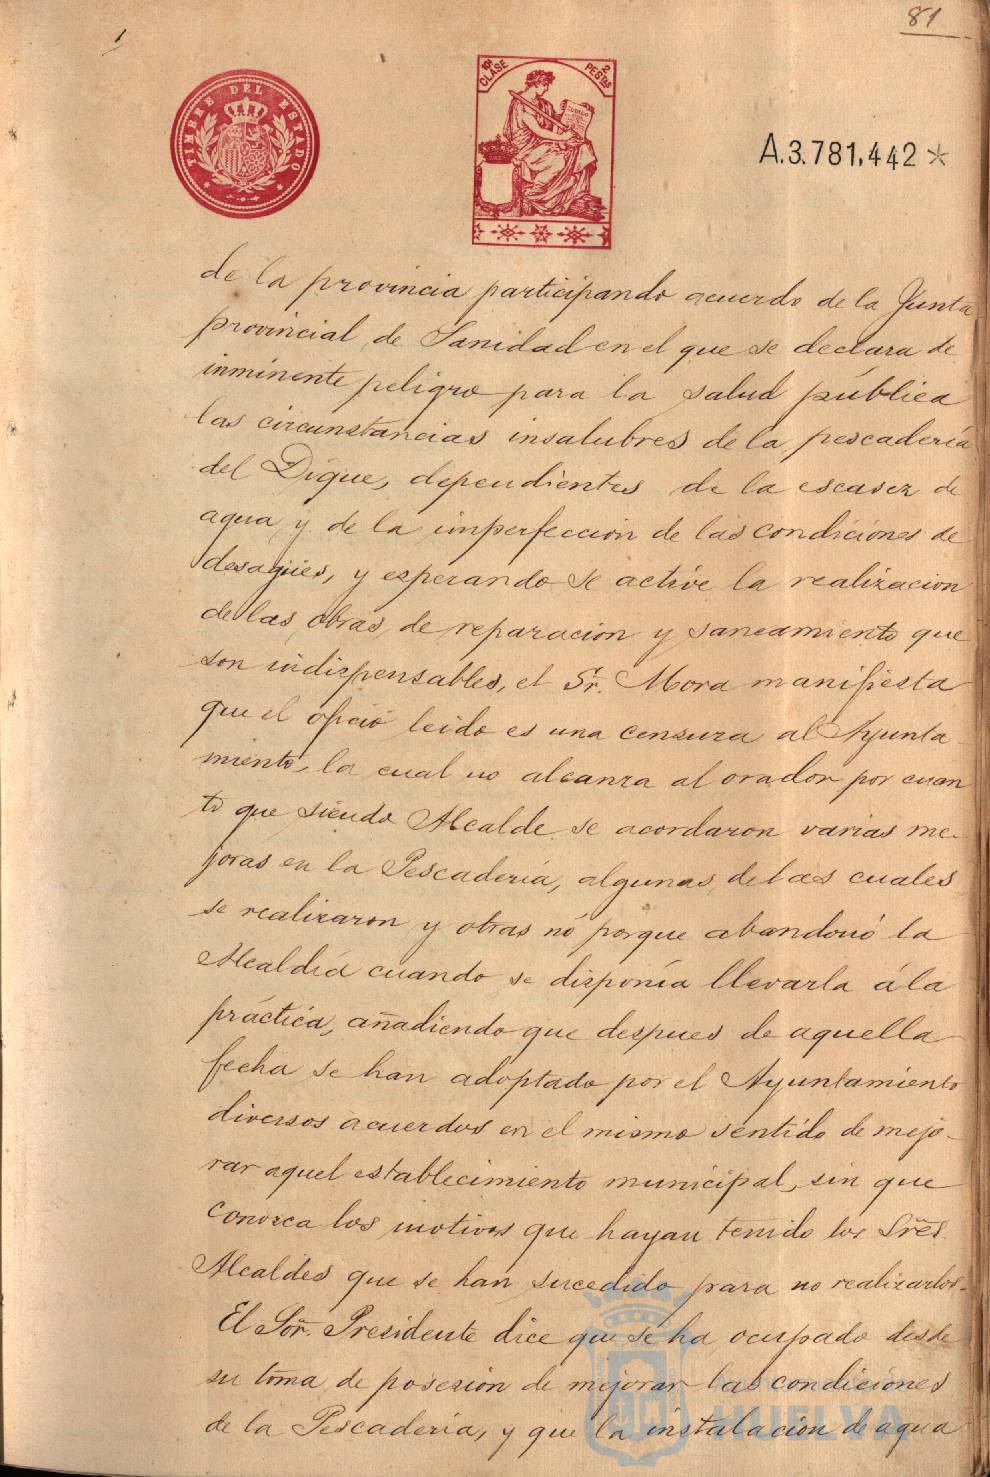 1
81
TIMBRE DEL ESTADO
10ª CLASE
2 PESTAS
A.3.781,442*
de la provincia participando acuerdo de la Junta
provincial de Sanidad en el que se declara de
inminente peligro para la salud pública
las circunstancias insalubres de la pescadería
del Dique, dependientes de la escasez de
agua y de la imperfeccion de las condiciones de
desagües, y esperando se active la realizacion
de las obras de reparacion y saneamiento que
son indispensables, el Sr. Mora manifiesta
que el oficio leido es una censura al Ayunta-
miento, la cual no alcanza al orador por cuan
to que siendo Alcalde se acordaron varias me-
joras en la Pescadería, algunas de las cuales
se realizaron y otras nó porque abandonó la
Alcaldía cuando se disponía llevarla á la
práctica, añadiendo que despues de aquella
fecha se han adoptado por el Ayuntamiento
diversos acuerdos en el mismo sentido de mejo-
rar aquel establecimiento municipal, sin que
conozca los motivos que hayan tenido los Sres.
Alcaldes que se han sucedido para no realizarlos.
El Sor. Presidente dice que se ha ocupado desde
su toma de posesión de mejorar las condiciones
de la Pescadería, y que la instalacion de agua
HUELVA